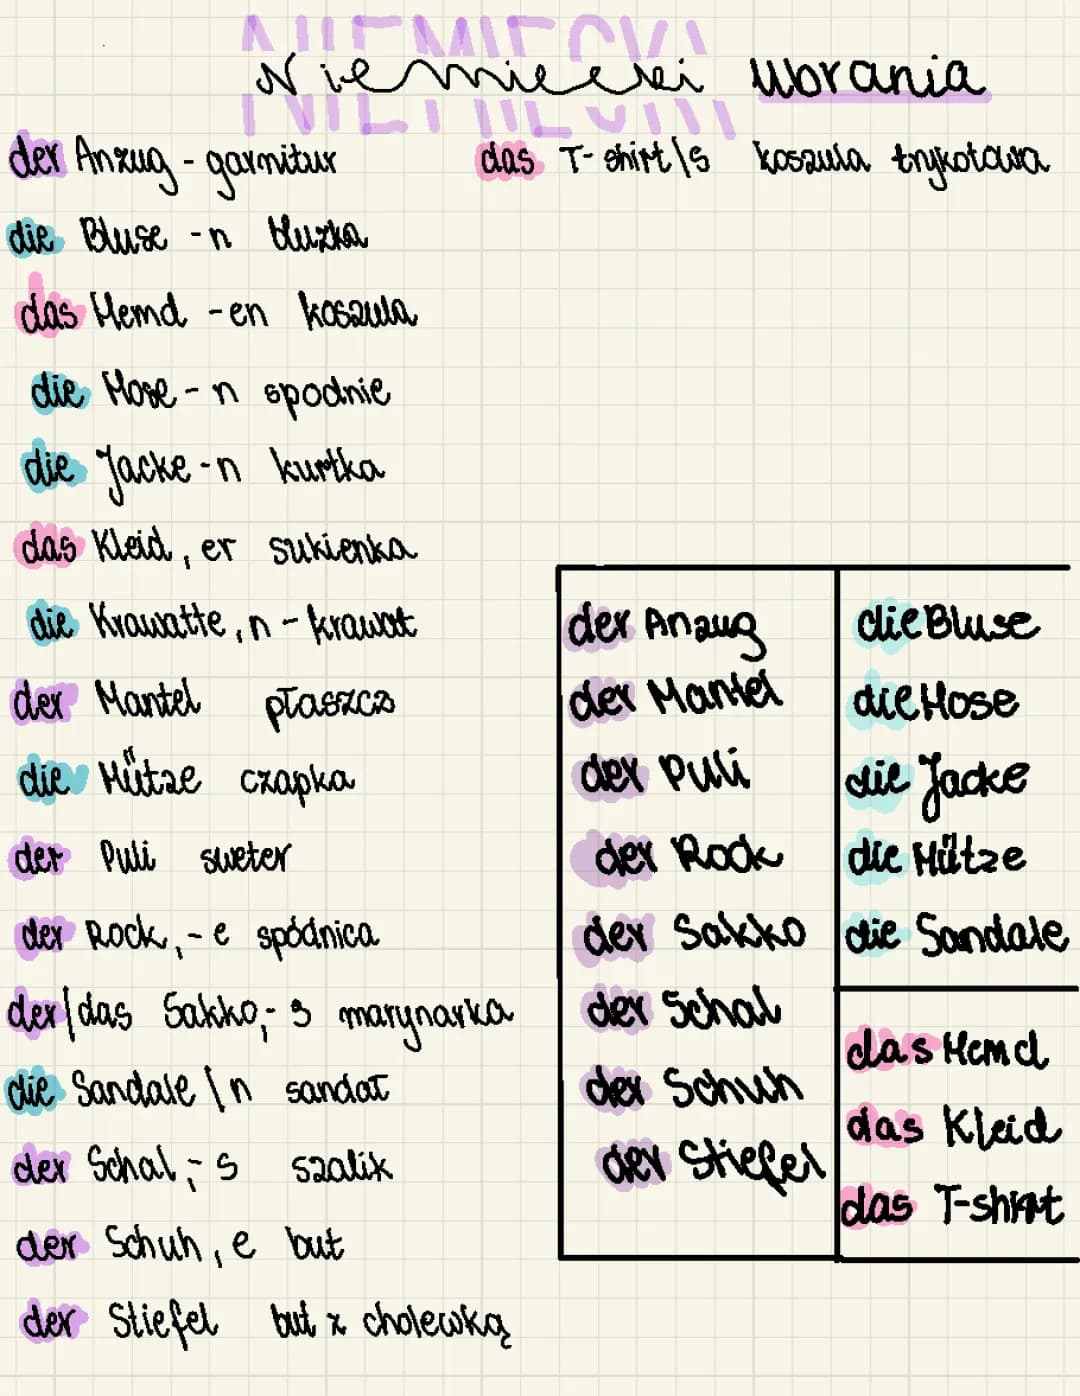 NIEMIECKI
Niemiecki ubrania
der Anzug - garnitur
die Bluse -n bluzka
das Hemd -en koszula
die Hose -n spodnie
die Jacke -n kurtka
das Kleid, er sukienka
die Krawatte, n - krawat
der Mantel płaszcz
die Mütze czapka
der Puli sweter
der Rock, -e spódnica
der/das Sakko,- s marynarka
die Sandale \n sandał
der Schal, - s szalik
der Schuh, e but
der Stiefel but z cholewką
das T-shirt/s koszula trykotowa
der Anzug
der Mantel
der Puli
der Rock
der Sakko
der Schal
der Schuh
der Stiefel
die Bluse
die Hose
die Jacke
die Mütze
die Sandale
das Hemd
das Kleid
das T-shirt